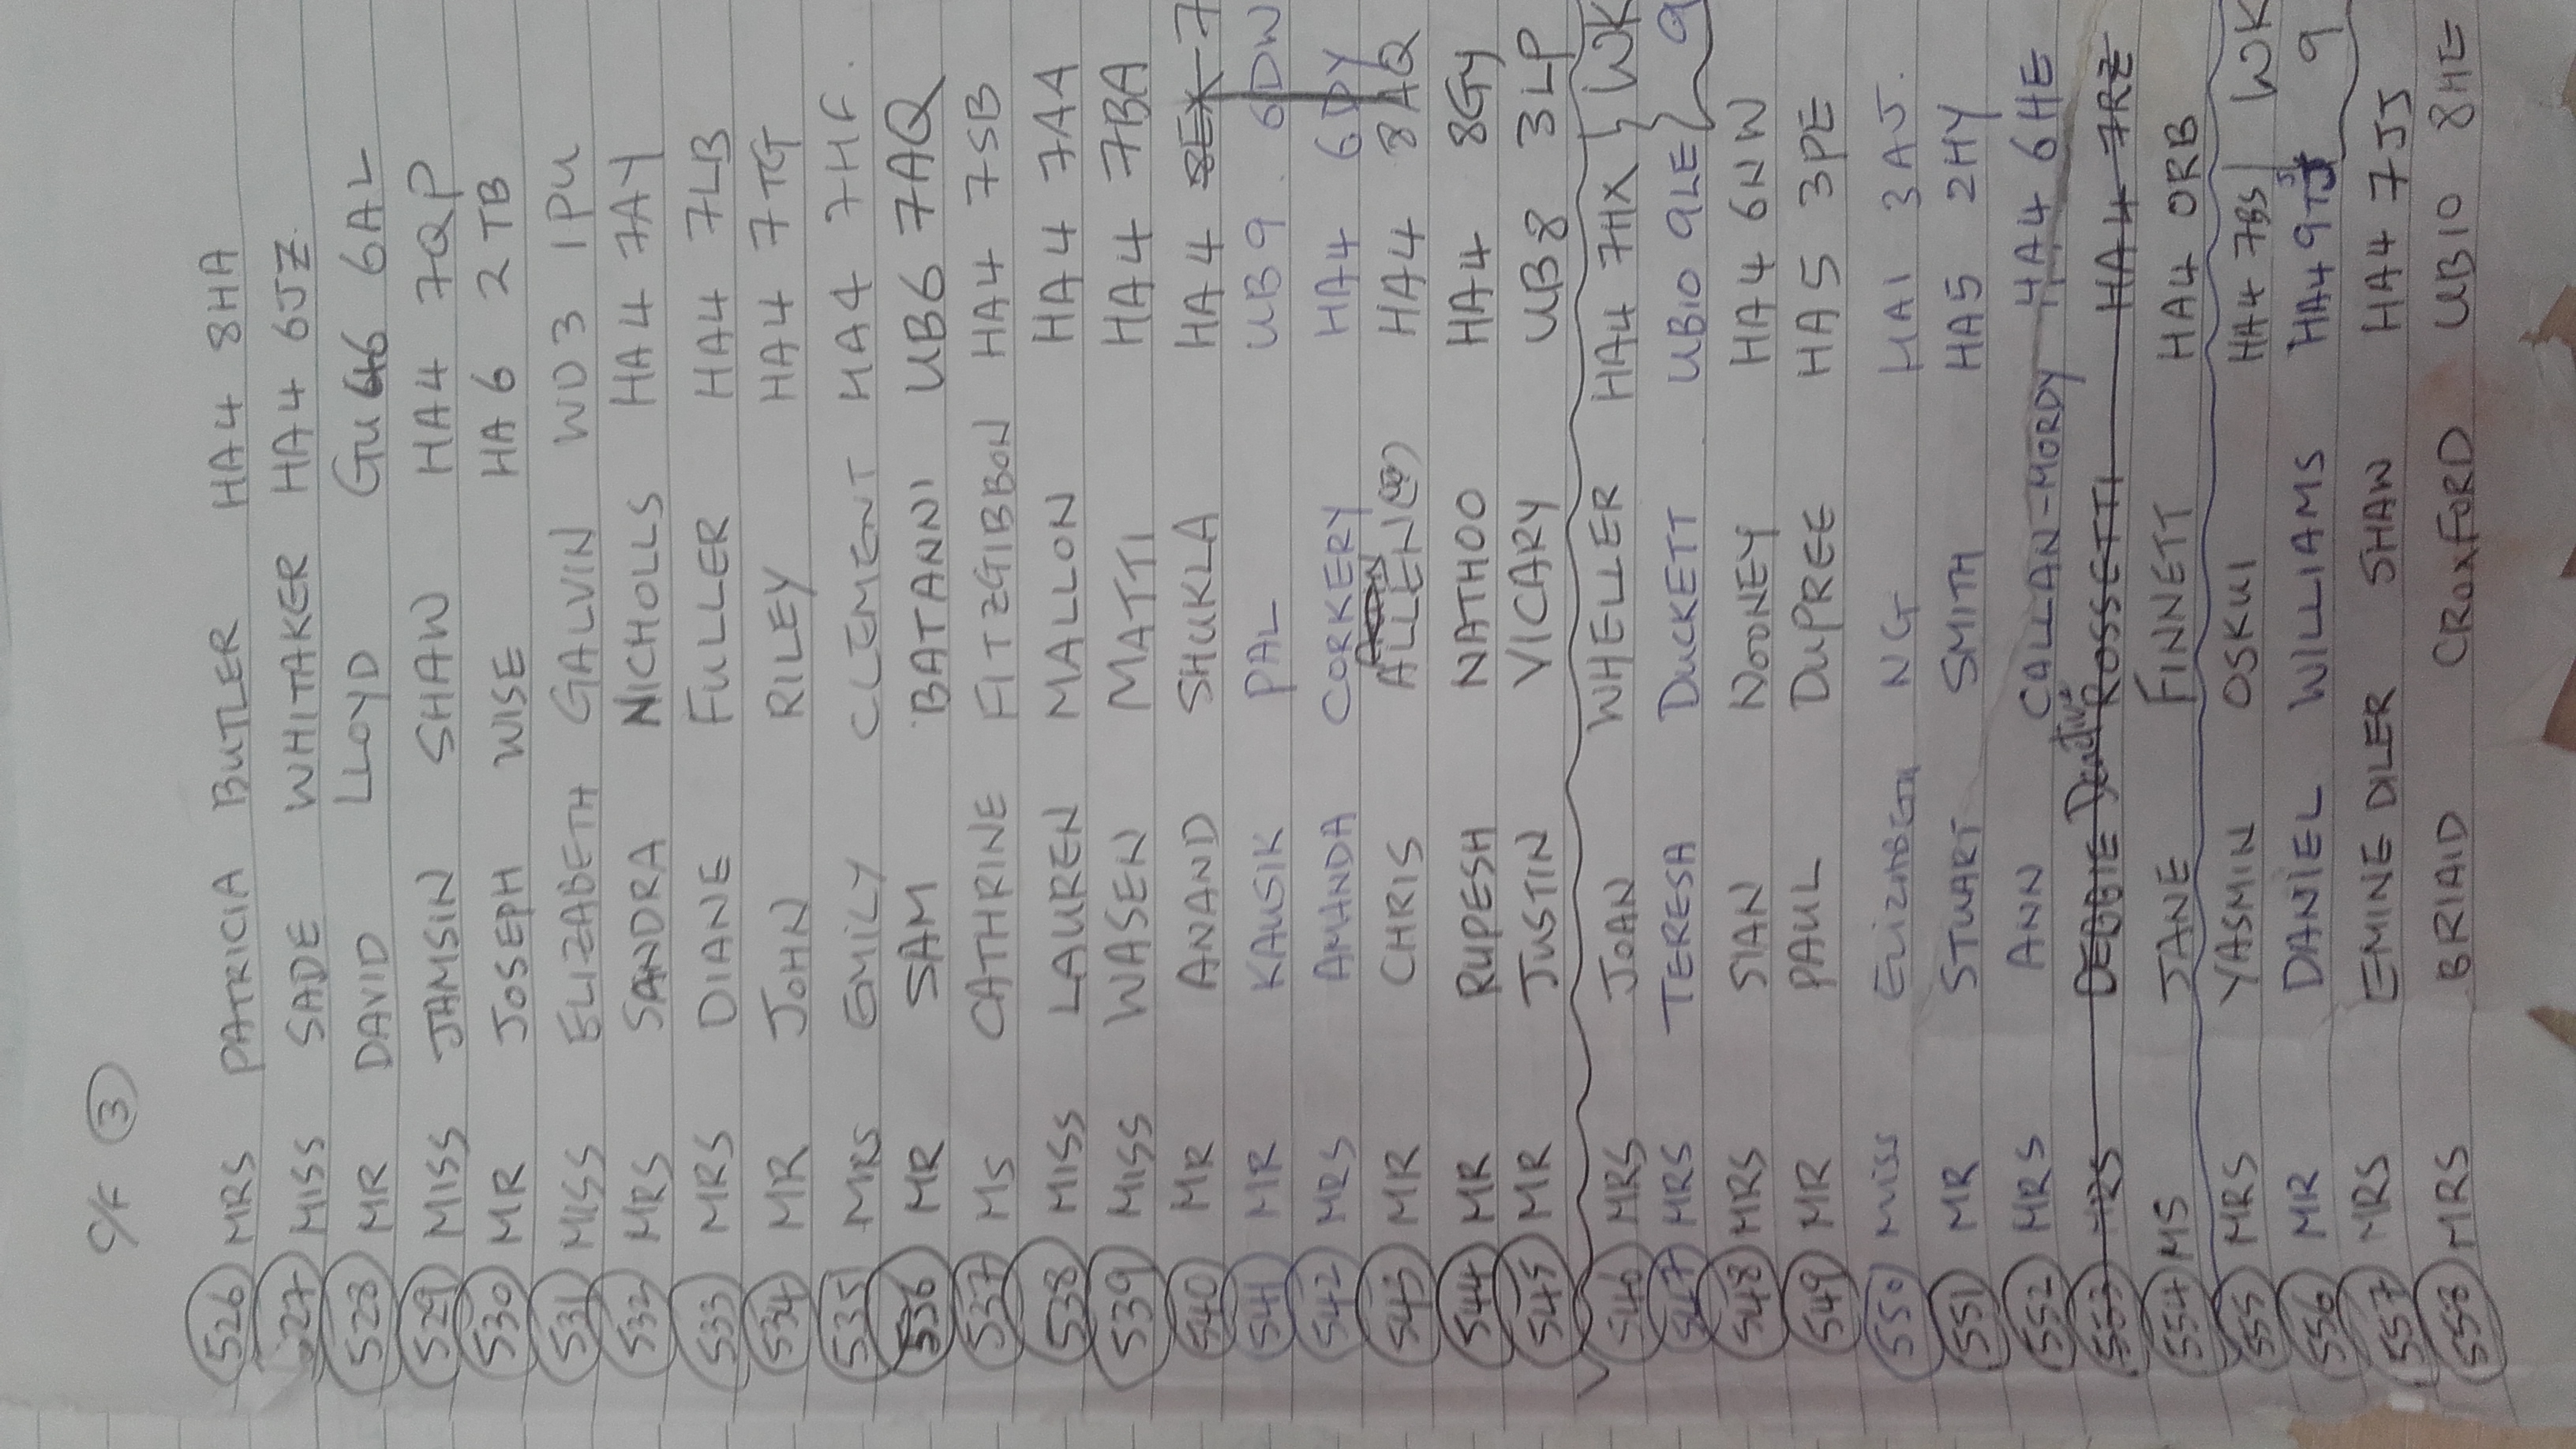 C/F 3
526 MRS PATRICIA BUTLER HA4 8HA
527 MISS SADE WHITAKER HA4 6JZ.
528 MR DAVID LLOYD GU46 6AL
529 MISS JAMSIN SHAW HA4 7QP
530 MR JOSEPH WISE HA6 2TB
531 MISS ELIZABETH GALVIN WD3 1PU
532 MRS SANDRA NICHOLLS HA4 7AY
533 MRS DIANE FULLER HA4 7LB
534 MR JOHN RILEY HA4 7TG
535 MRS EMILY CLEMENT HA4 7HF.
536 MR SAM BATANNI UB6 7AQ
537 MS CATHRINE FITZGIBBON HA4 7SB
538 MISS LAUREN MALLON HA4 7AA
539 MISS WASEN MATTI HA4 7BA
540 MR ANAND SHUKLA HA4 8EX 7
541 MR KAUSIK PAL UB9. 6DW
542 MRS AMANDA CORKERY HA4 6DY
543 MR CHRIS ALLEN HA4 8AQ
544 MR RUPESH NATHOO HA4 8GY
545 MR JUSTIN VICARY UB8 3LP
546 MRS JOAN WHELLER HA4 7HX } WK
547 MRS TERESA DUCKETT UB10 9LE 9
548 MRS SIAN NOONEY HA4 6NW
549 MR PAUL DUPREE HA5 3PE
550 MISS ELIZABETH NG HA1 3AJ.
551 MR STUART SMITH HA5 2HY
552 MRS ANN CALLAN-MORDY HA4 6HE
553 MRS DEBBIE Deactive ROSSETTI HA4 7RZ
554 MS JANE FINNETT HA4 0RB
555 MRS YASMIN OSKUI HA4 7BS WK
556 MR DANIEL WILLIAMS HA4 9TJ 9
557 MRS EMINE DILER SHAW HA4 7JJ
558 MRS BRIAID CROXFORD UB10 8HE